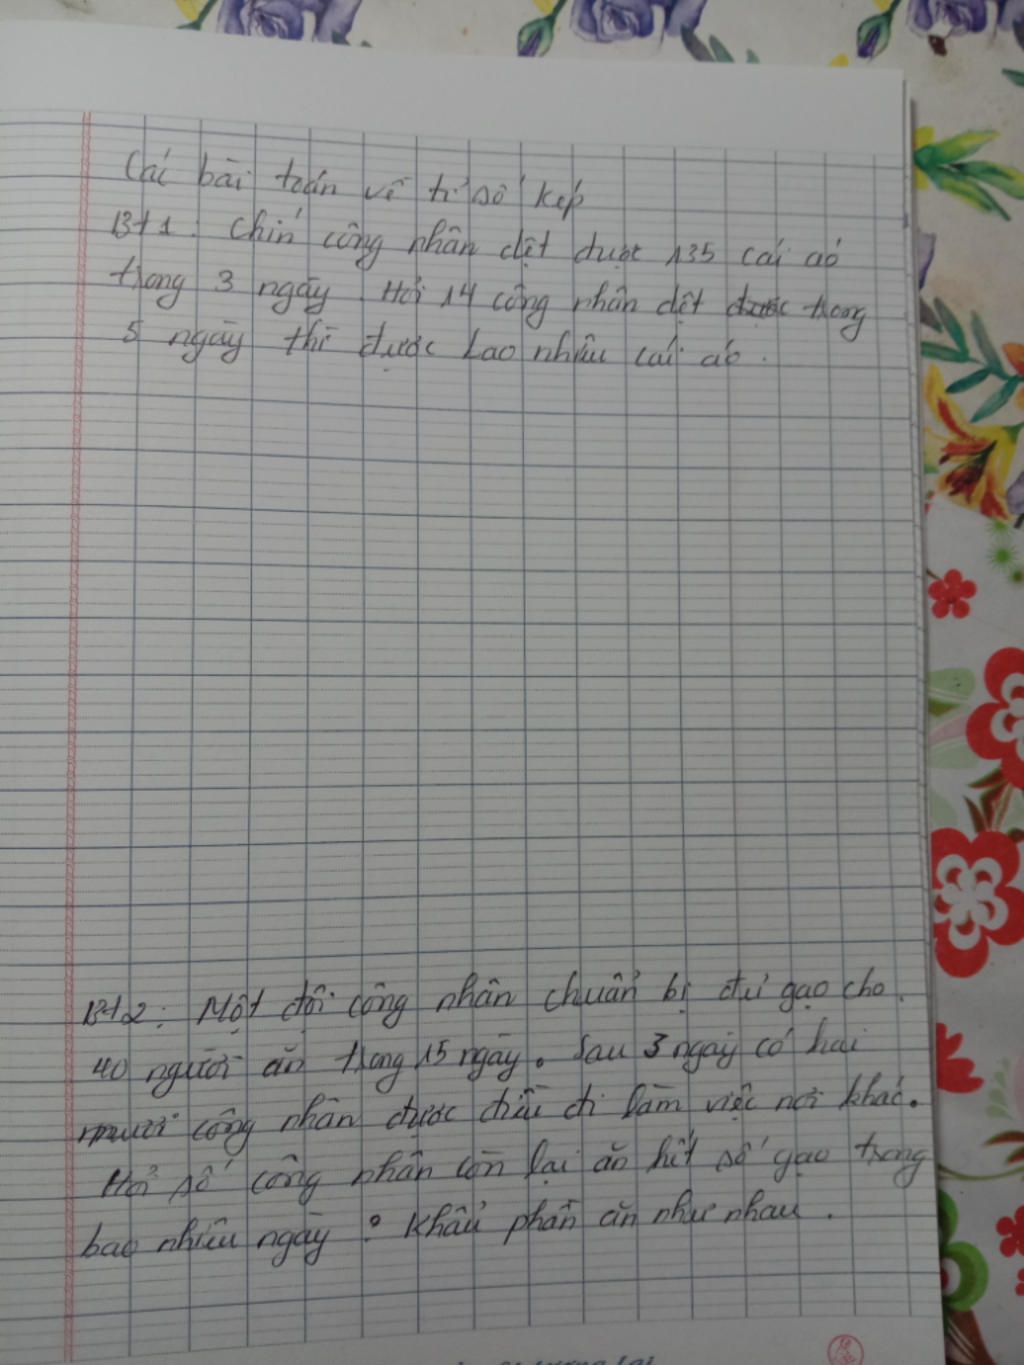 Các bài toán về tỉ số kép
Bt1: Chín công nhân dệt được 135 cái áo
trong 3 ngày. Hỏi 14 công nhân dệt được trong
5 ngày thì được bao nhiêu cái áo.
Bt2: Một đội công nhân chuẩn bị đủ gạo cho
40 người ăn trong 15 ngày. Sau 3 ngày có hai
mươi công nhân được điều đi làm việc nơi khác.
Hỏi số công nhân còn lại ăn hết số gạo trong
bao nhiêu ngày? Khẩu phần ăn như nhau.